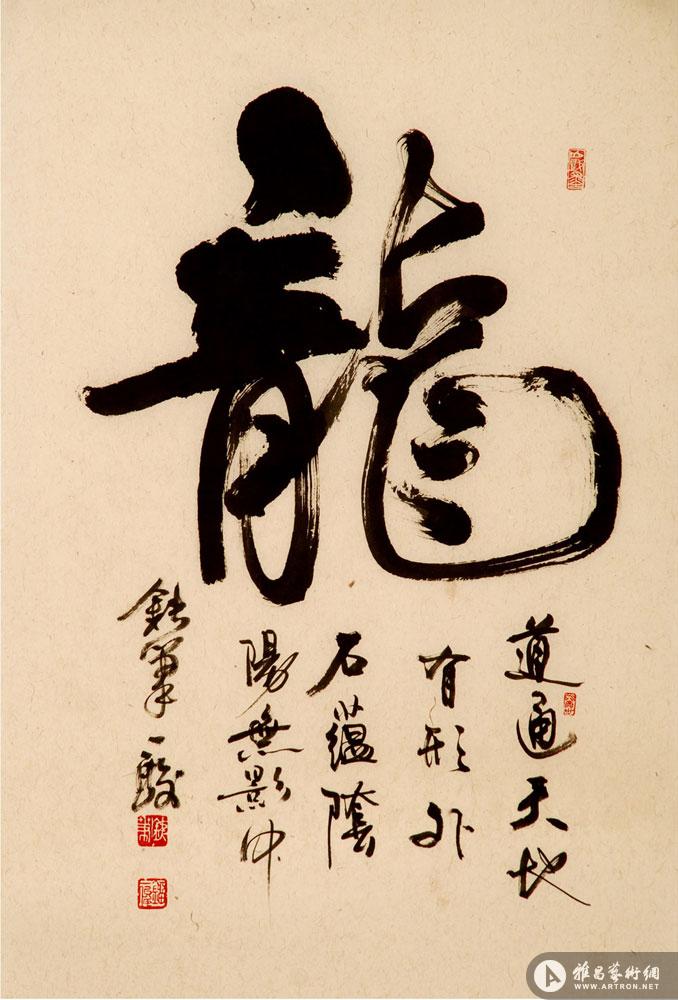 龍
道通天地
有形外
石蘊陰
陽無影中
鉄筆一
雅昌藝術網
WWW.ARTRON.NET